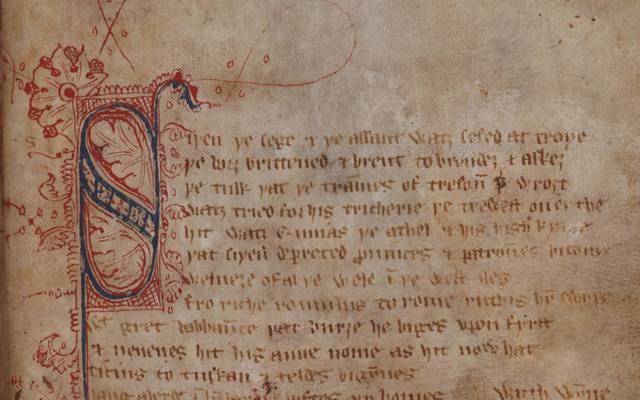 Siþen þe sege & þe assaut watz sesed at troye
þe borȝ brittened & brent to brondez & askez
þe tulk þat þe tram̄es of tresoū þ̄ wroȝt
watz tried for his tricherie þe trewest on erthe
hit watz Ennias þe athel & his highe kynde
þat siþen depreced prouinces & patrounes bicome
welneȝe of al þe wele ī þe west iles
fro riche romulus to rome ricchis hym swyþe
gret bobbaūce þat burȝe he biges vpon fyrst
& neuenes hit his aune nome as hit now hat
ticius to tuskan & teldes bigȳnes